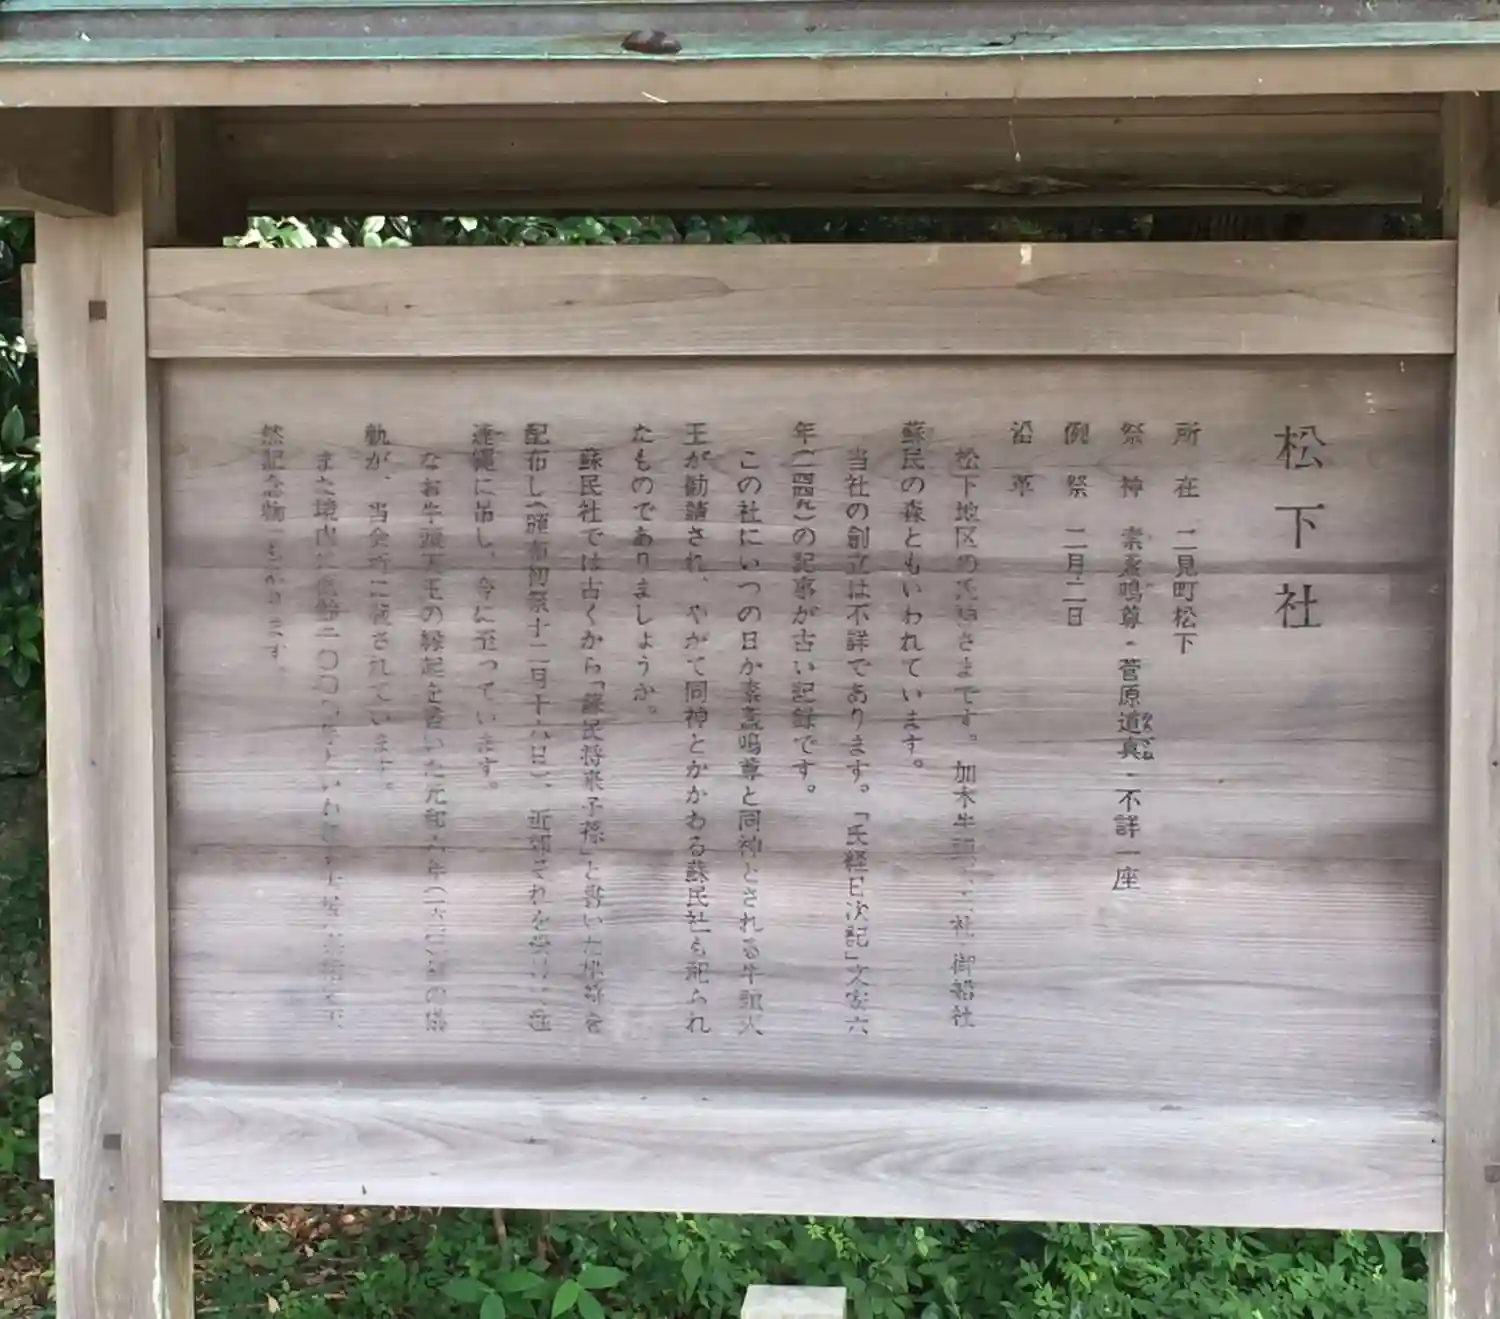 松下社
所在 二見町松下
祭神 素盞鳴尊・菅原道真・不詳一座
例祭 二月二日
沿革
松下地区の氏神さまです。加木牛頭 社・御船社
蘇民の森ともいわれています。
当社の創立は不詳であります。「氏経日次記」文安六
年(一四四九)の記事が古い記録です。
この社にいつの日か素盞鳴尊と同神とされる牛頭天
王が勧請され、やがて同神とかかわる蘇民社も祀られ
たものでありましょうか。
蘇民社では古くから「蘇民将来子孫」と書いた桃符を
配布し(頒布初祭十二月十八日)、近郷 これを受け 注
連縄に吊し、今に至っています。
なお牛頭天王の縁起を書いた元和六年( )の
軌が、当会所に蔵されています。
また境内に樹齢二〇〇〇年といわれ 天
然記念物 もあります。